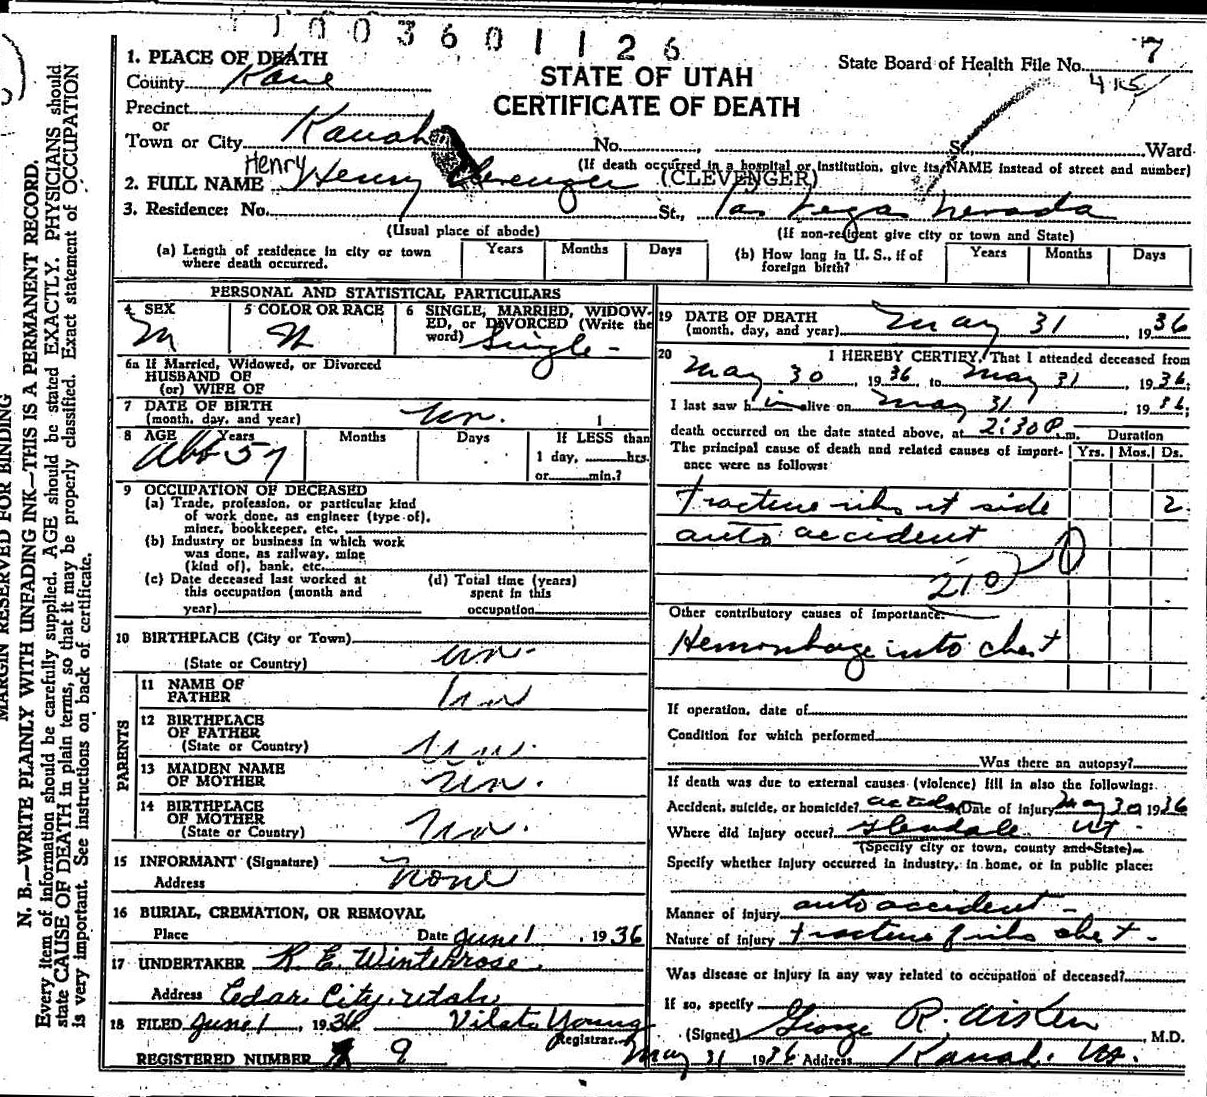 1003601126
1. PLACE OF DEATH
County Kane
STATE OF UTAH
CERTIFICATE OF DEATH
State Board of Health File No. 7
415
Precinct
or
Town or City Kanab No. , St. Ward
(If death occurred in a hospital or institution, give its NAME instead of street and number)
Henry
2. FULL NAME Henry Clevenger (CLEVENGER)
3. Residence: No. St., Las Vegas Nevada
(Usual place of abode) (If non-resident give city or town and State)
(a) Length of residence in city or town where death occurred. Years Months Days
(b) How long in U. S., if of foreign birth? Years Months Days
PERSONAL AND STATISTICAL PARTICULARS
4 SEX M
5 COLOR OR RACE W
6 SINGLE, MARRIED, WIDOW-
ED, or DIVORCED (Write the
word) Single -
6a If Married, Widowed, or Divorced
HUSBAND OF
(or) WIFE OF
7 DATE OF BIRTH
(month, day, and year) un. 1
8 AGE Years Months Days If LESS than
Abt 57 1 day, hrs.
or min.?
9 OCCUPATION OF DECEASED
(a) Trade, profession, or particular kind
of work done, as engineer (type of),
miner, bookkeeper, etc.
(b) Industry or business in which work
was done, as railway, mine
(kind of), bank, etc.
(c) Date deceased last worked at
this occupation (month and
year)
(d) Total time (years)
spent in this
occupation
10 BIRTHPLACE (City or Town)
(State or Country) un.
11 NAME OF
FATHER un
12 BIRTHPLACE
OF FATHER
(State or Country) un.
13 MAIDEN NAME
OF MOTHER un.
14 BIRTHPLACE
OF MOTHER
(State or Country) un.
PARENTS
15 INFORMANT (Signature)
Address none
16 BURIAL, CREMATION, OR REMOVAL
Place Date June 1, 1936
17 UNDERTAKER R. E. Winterrose
Address Cedar City, Utah
18 FILED June 1, 1936 Vilate Young
Registrar.
REGISTERED NUMBER 9
19 DATE OF DEATH
(month, day, and year) May 31, 1936
20 I HEREBY CERTIFY, That I attended deceased from
May 30, 1936 to May 31, 1936;
I last saw him alive on May 31, 1936;
death occurred on the date stated above, at 2:30 P.m. Duration
The principal cause of death and related causes of import-
ance were as follows: Yrs. Mos. Ds.
Fracture ribs rt side 2
auto accident
210
Other contributory causes of importance:
Hemorrhage into chest
If operation, date of
Condition for which performed
Was there an autopsy?
If death was due to external causes (violence) fill in also the following:
Accident, suicide, or homicide? Date of injury May 30 1936
Where did injury occur? Glendale UT
(Specify city or town, county and State)
Specify whether injury occurred in industry, in home, or in public place:
Manner of injury auto accident -
Nature of injury fracture of ribs chest -
Was disease or injury in any way related to occupation of deceased?
If so, specify
(Signed) George R. Aiken, M.D.
May 31 1936 Address Kanab. Ut.
MARGIN RESERVED FOR BINDING
N. B.—WRITE PLAINLY WITH UNFADING INK—THIS IS A PERMANENT RECORD.
Every item of information should be carefully supplied. AGE should be stated EXACTLY. PHYSICIANS should
state CAUSE OF DEATH in plain terms, so that it may be properly classified. Exact statement of OCCUPATION
is very important. See instructions on back of certificate.